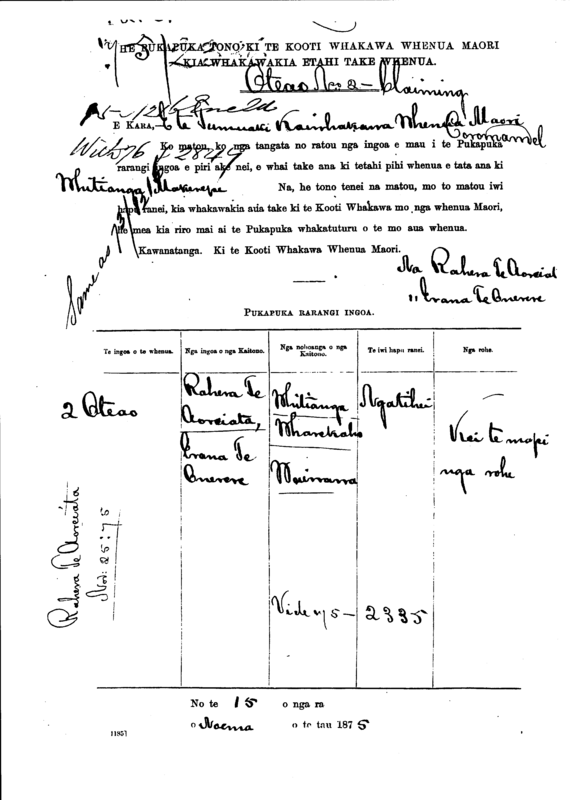 HE PUKAPUKA TONO KI TE KOOTI WHAKAWA WHENUA MAORI
KIA WHAKAWAKIA ETAHI TAKE WHENUA.
Oteao No 2 - Claiming
E KARA, E te Tumuaki Kaiwhakawa Whenua Maori
Coromandel
Ko matou, ko nga tangata no ratou nga ingoa e mau i te Pukapuka
rarangi ingoa e piri ake nei, e whai take ana ki tetahi pihi whenua e tata ana ki
Whitianga Na, he tono tenei na matou, mo to matou iwi
hapu ranei, kia whakawakia aua take ki te Kooti Whakawa mo nga whenua Maori,
he mea kia riro mai ai te Pukapuka whakatuturu o te mo aua whenua.
Kawanatanga. Ki te Kooti Whakawa Whenua Maori.
Same as
Na Rahera Te
" Erana Te
PUKAPUKA RARANGI INGOA.
Te ingoa o te whenua. Nga ingoa o nga Kaitono. Nga nohoanga o nga Kaitono. Te iwi hapu ranei. Nga rohe.
2 Oteao
Rahera Te
Erana Te
Whitianga
Wharekaho
Ngatihei
Kei te mapi
nga rohe
Rahera Te
Nov: 25: 75
Vide 75 - 2335
No te 15 o nga ra
o Noema o te tau 1875